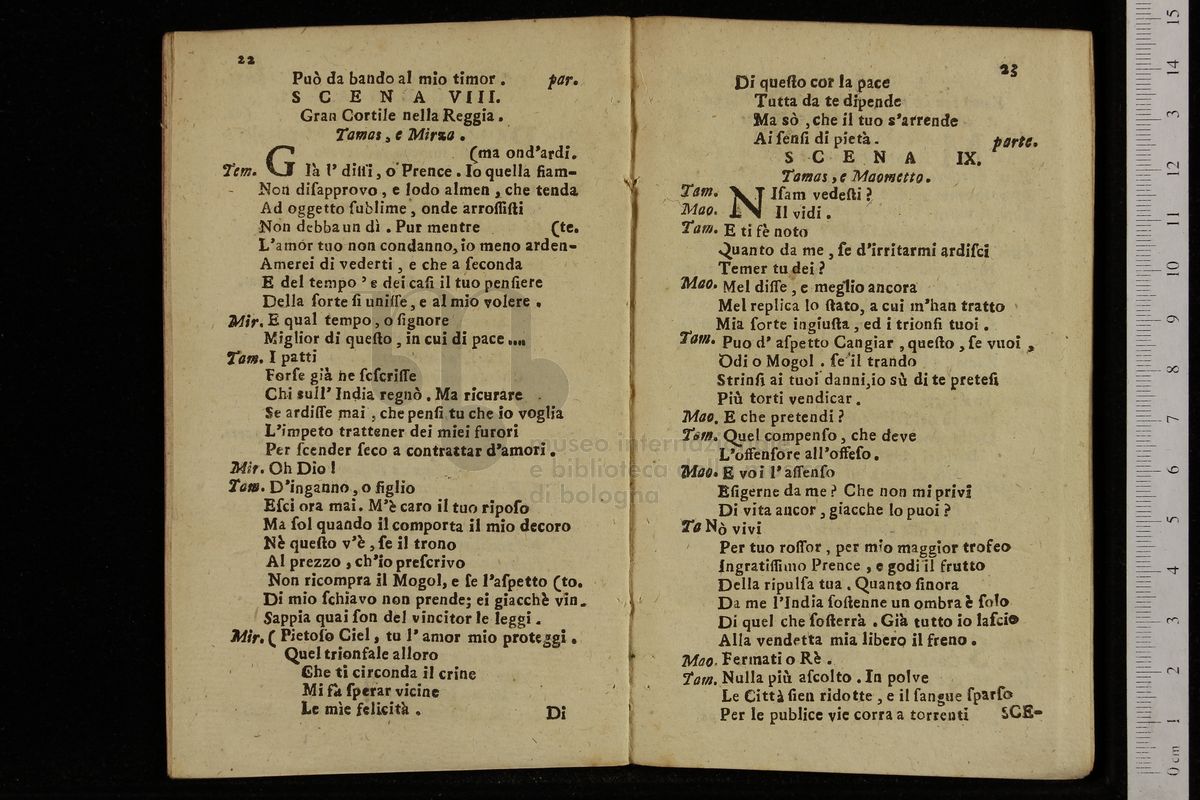 22
Può da bando al mio timor. par.
SCENA VIII.
Gran Cortile nella Reggia.
Tamas, e Mirza.
(ma ond'ardi.
Tem. Già l' diſſi, o Prence. Io quella fiam-
Non diſapprovo, e lodo almen, che tenda
Ad oggetto ſublime, onde arroſſiſti
Non debba un dì. Pur mentre (te.
L'amor tuo non condanno, io meno arden-
Amerei di vederti, e che a ſeconda
E del tempo 'e dei caſi il tuo penſiere
Della ſorte ſi uniſſe, e al mio volere.
Mir. E qual tempo, o ſignore
Miglior di queſto, in cui di pace ....
Tam. I patti
Forſe già ne ſcſcriſſe
Chi sull' India regnò. Ma ricurare
Se ardiſſe mai, che penſi tu che io voglia
L'impeto trattener dei miei furori
Per ſcender ſeco a contrattar d'amori.
Mir. Oh Dio!
Tam. D'inganno, o figlio
Eſci ora mai. M'è caro il tuo ripoſo
Ma ſol quando il comporta il mio decoro
Nè queſto v'è, ſe il trono
Al prezzo, ch'io preſcrivo
Non ricompra il Mogol, e ſe l'aſpetto (to.
Di mio ſchiavo non prende; ei giacchè vin-
Sappia quai ſon del vincitor le leggi.
Mir. ( Pietoſo Ciel, tu l' amor mio proteggi.
Quel trionfale alloro
Che ti circonda il crine
Mi fà ſperar vicine
Le mie felicità.
Di
23
Di queſto cor la pace
Tutta da te dipende
Ma sò, che il tuo s'arrende
Ai ſenſi di pietà. parte.
SCENA IX.
Tamas, e Maometto.
Tam. NIſam vedeſti?
Mao. Il vidi.
Tam. E ti fè noto
Quanto da me, ſe d'irritarmi ardiſci
Temer tu dei?
Mao. Mel diſſe, e meglio ancora
Mel replica lo ſtato, a cui m'han tratto
Mia ſorte ingiuſta, ed i trionfi tuoi.
Tam. Puo d' aſpetto Cangiar, queſto, ſe vuoi,
Odi o Mogol. ſe il trando
Strinſi ai tuoi danni, io sù di te preteſi
Più torti vendicar.
Mao. E che pretendi?
Tam. Quel compenſo, che deve
L'offenſore all'offeſo.
Mao. E voi l'aſſenſo
Eſigerne da me? Che non mi privi
Di vita ancor, giacche lo puoi?
Ta Nò vivi
Per tuo roſſor, per mio maggior trofeo
Ingratiſſimo Prence, e godi il frutto
Della ripulſa tua. Quanto ſinora
Da me l'India ſoſtenne un ombra è ſolo
Di quel che ſoſterrà. Già tutto io laſcio
Alla vendetta mia libero il freno.
Mao. Fermati o Rè.
Tam. Nulla più aſcolto. In polve
Le Città ſien ridotte, e il ſangue ſparſo
Per le publice vie corra a torrenti
SCE-
museo internazionale
e biblioteca
di bologna
0 cm 1 2 3 4 5 6 7 8 9 10 11 12 13 14 15